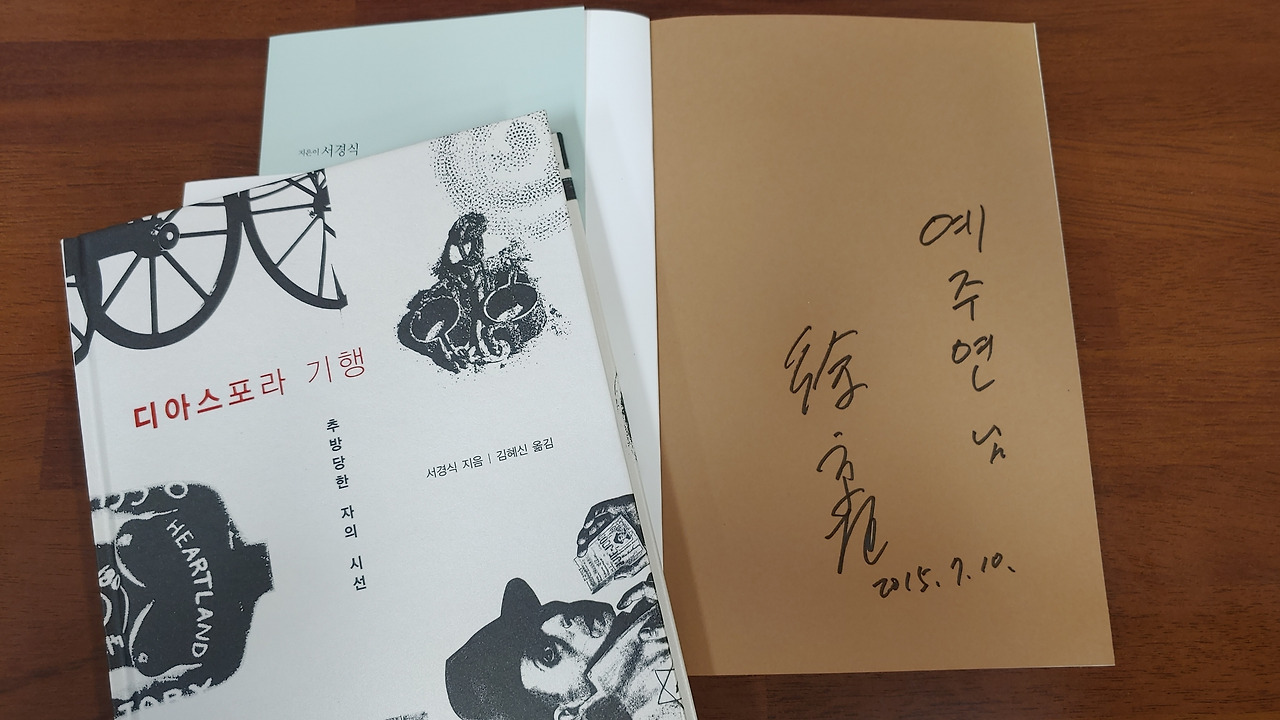 지은이 서경식
디아스포라 기행
추방당한 자의 시선
서경식 지음 | 김혜신 옮김
HEARTLAND
예주연님
徐京植
2015. 7. 10.